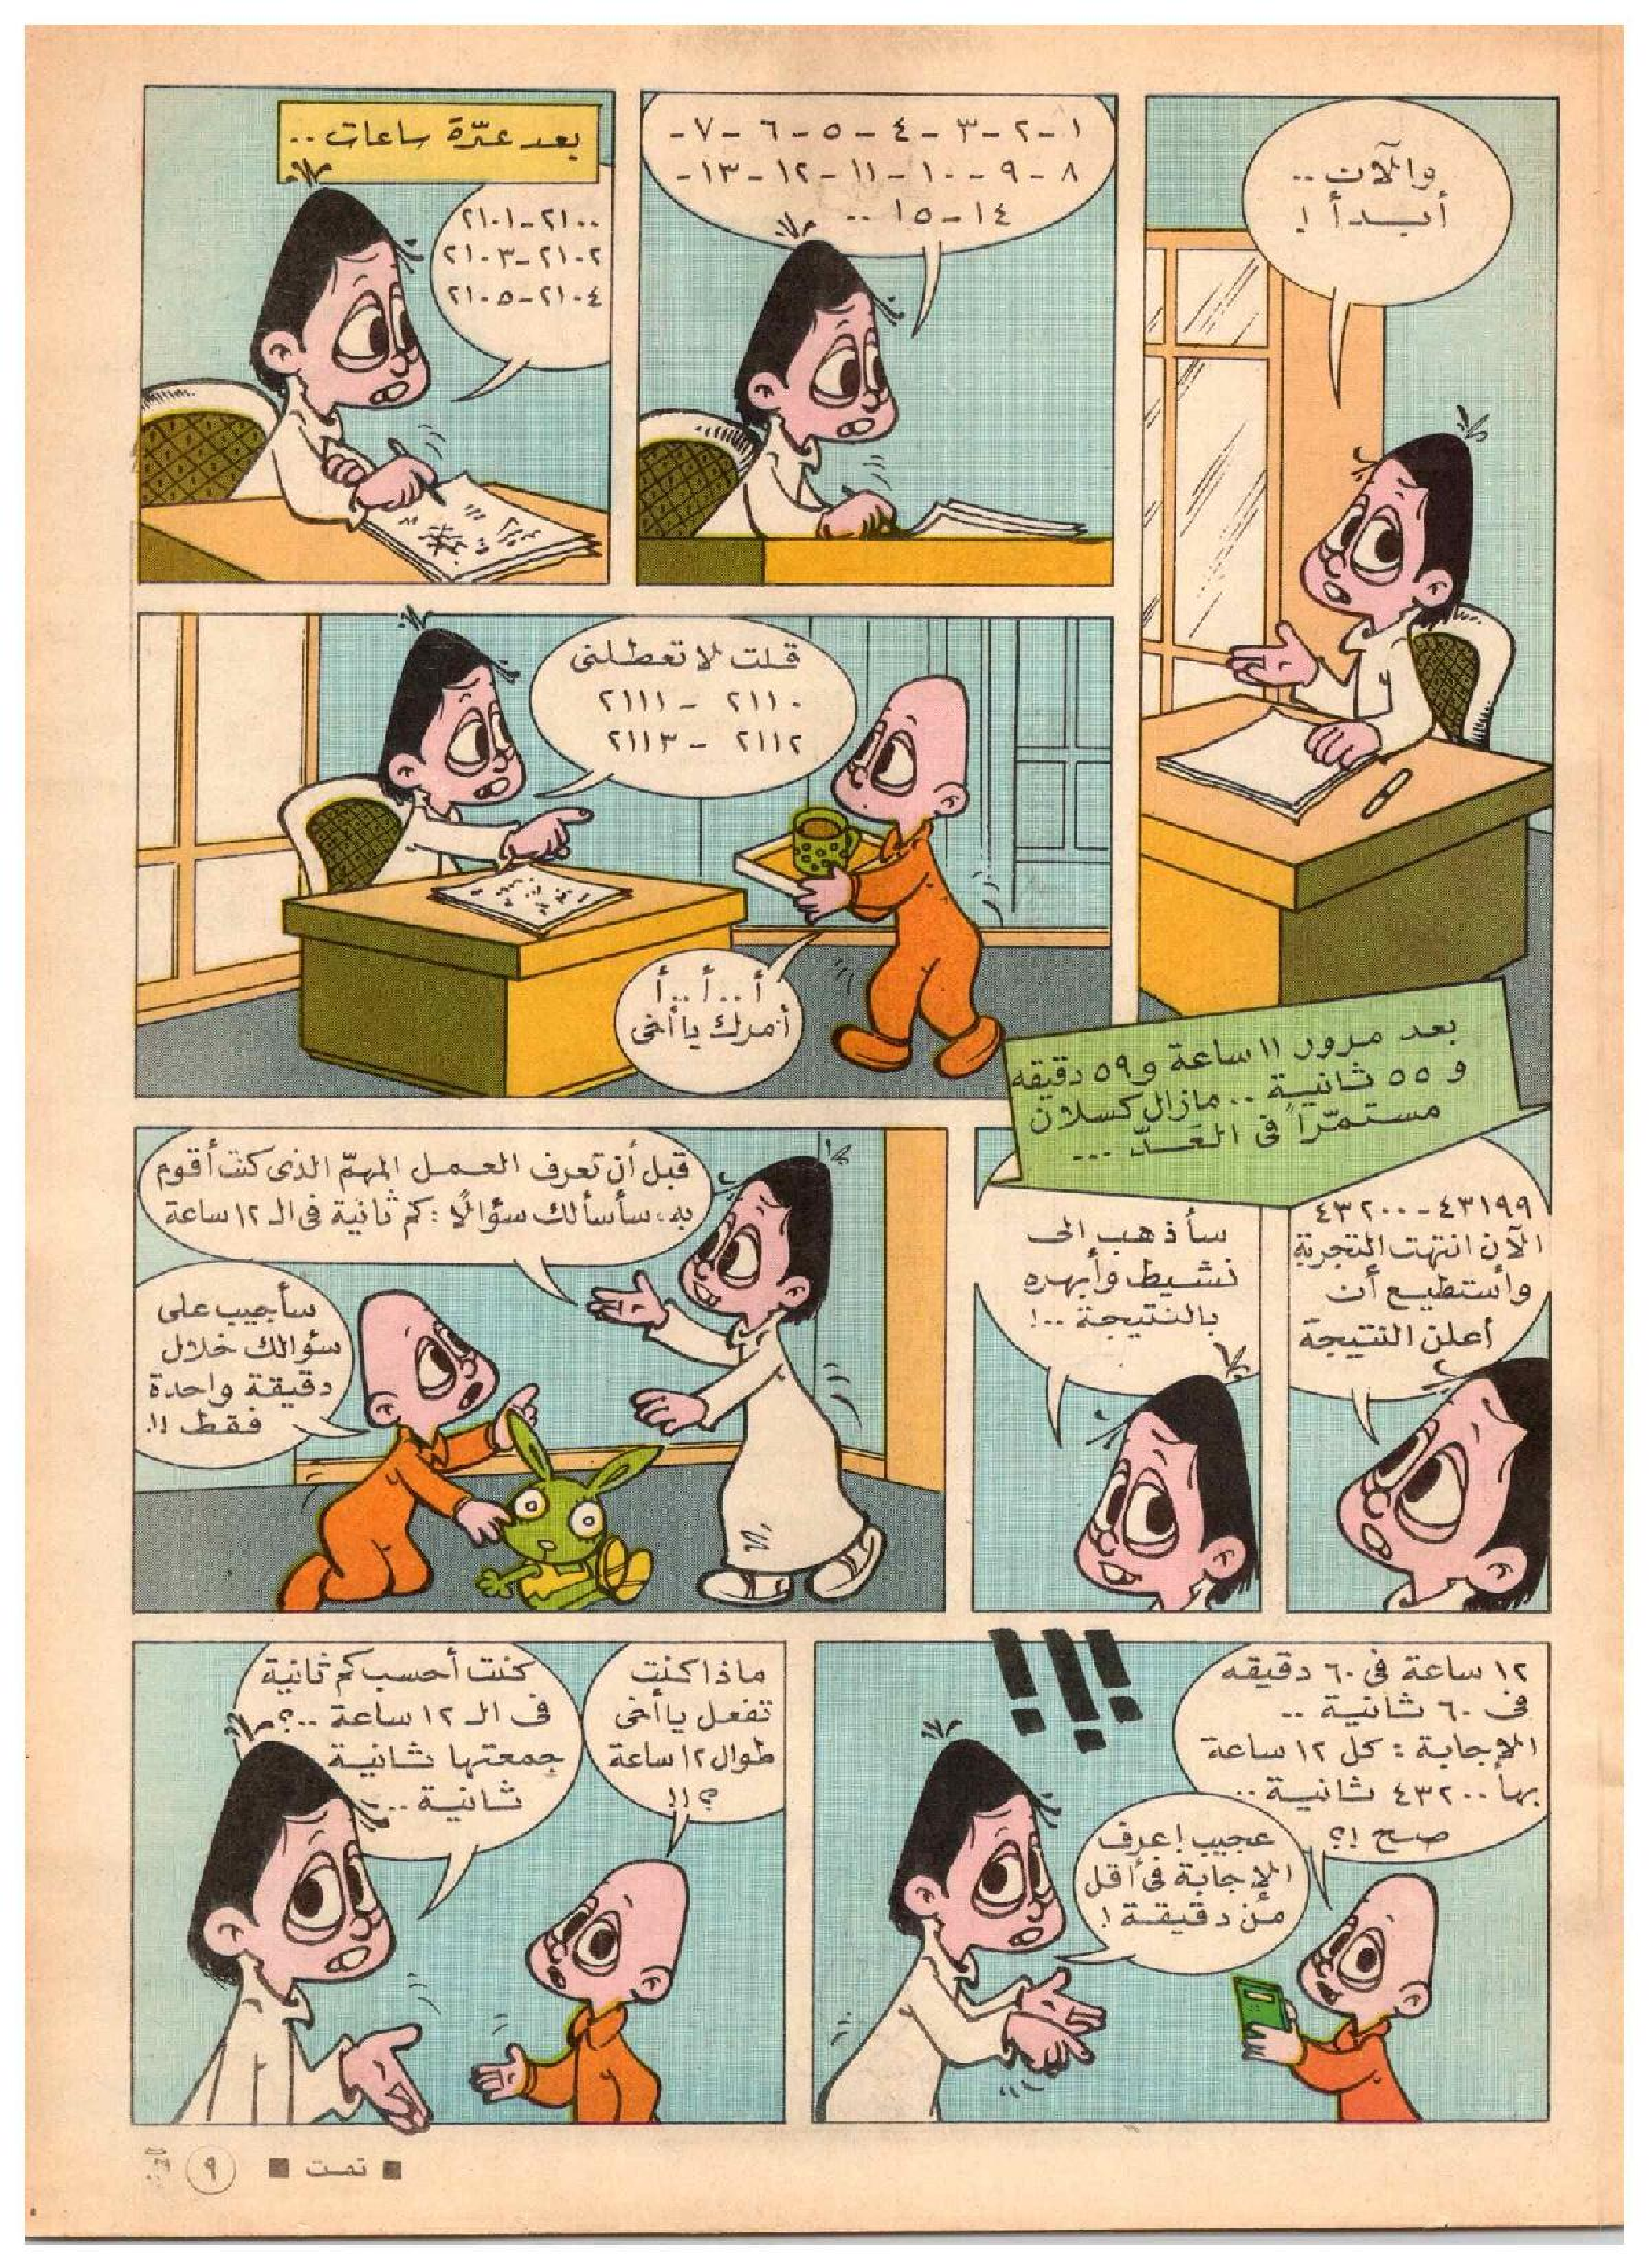 والآن ..
أبدأ !
١-٢-٣-٤-٥-٦-٧-
٨-٩-١٠-١١-١٢-١٣-
١٤-١٥ ..
بعد عدّة ساعات ..
٢١٠٠-٢١٠١
٢١٠٢-٢١٠٣
٢١٠٤-٢١٠٥
قلت لا تعطلنى
٢١١٠ - ٢١١١
٢١١٢ - ٢١١٣
أ..أ..أ
أمرك يا أخى
بعد مرور ١١ ساعة و ٥٩ دقيقه
و ٥٥ ثانية .. مازال كسلان
مستمرّاً فى العَدّ ...
٤٣١٩٩-٤٣٢٠٠
الآن انتهت التجربة
وأستطيع أن
أعلن النتيجة
سأذهب إلى
نشيط وأبهره
بالنتيجة ..!
قبل أن تعرف العمل المهمّ الذى كنت أقوم
به، سأسألك سؤالًا : كم ثانية فى الـ ١٢ ساعة
سأجيب على
سؤالك خلال
دقيقة واحدة
فقط !!
١٢ ساعة فى ٦٠ دقيقه
فى ٦٠ ثانية ..
الإجابة : كل ١٢ ساعة
بها ٤٣٢٠٠ ثانية ..
صح !؟
!!!
عجيب ! عرف
الإجابة فى أقل
من دقيقة !
ماذا كنت
تفعل يا أخى
طوال ١٢ ساعة
؟!!
كنت أحسب كم ثانية
فى الـ ١٢ ساعة ..؟
جمعتها ثانية
ثانية ..
■ تمت ■
٩